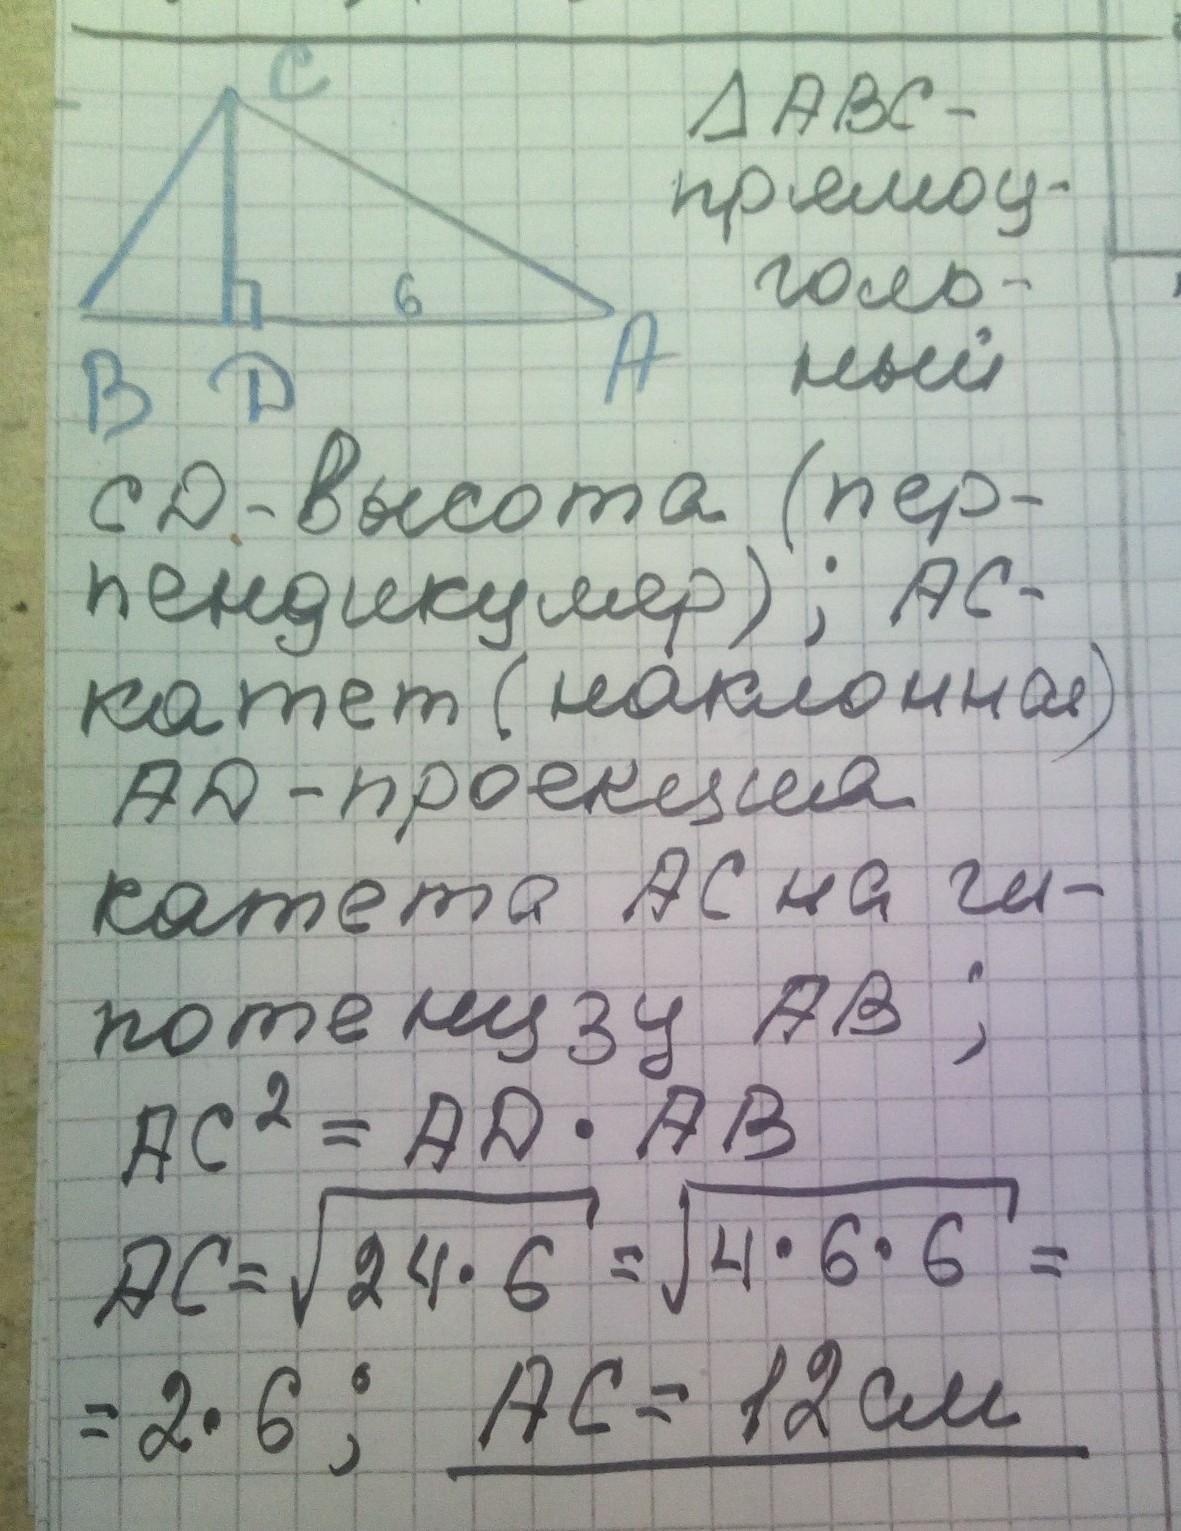 C
6
B D A
△ABC-
прямоу-
голь-
ный
CD-высота (пер-
пендикуляр); AC-
катет (наклонная)
AD-проекция
катета AC на ги-
потенузу AB;
AC² = AD · AB
AC = √24·6 = √4·6·6 =
= 2·6; AC = 12 см